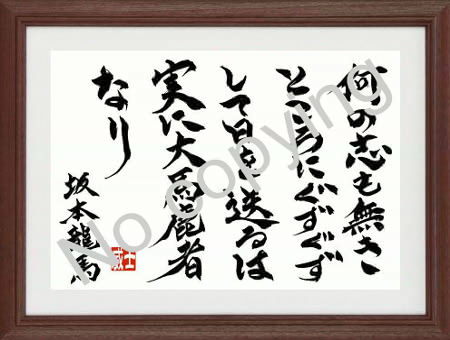 何の志も無き
ところにぐずぐず
して日を送るは
実に大馬鹿者
なり
坂本龍馬
No copying